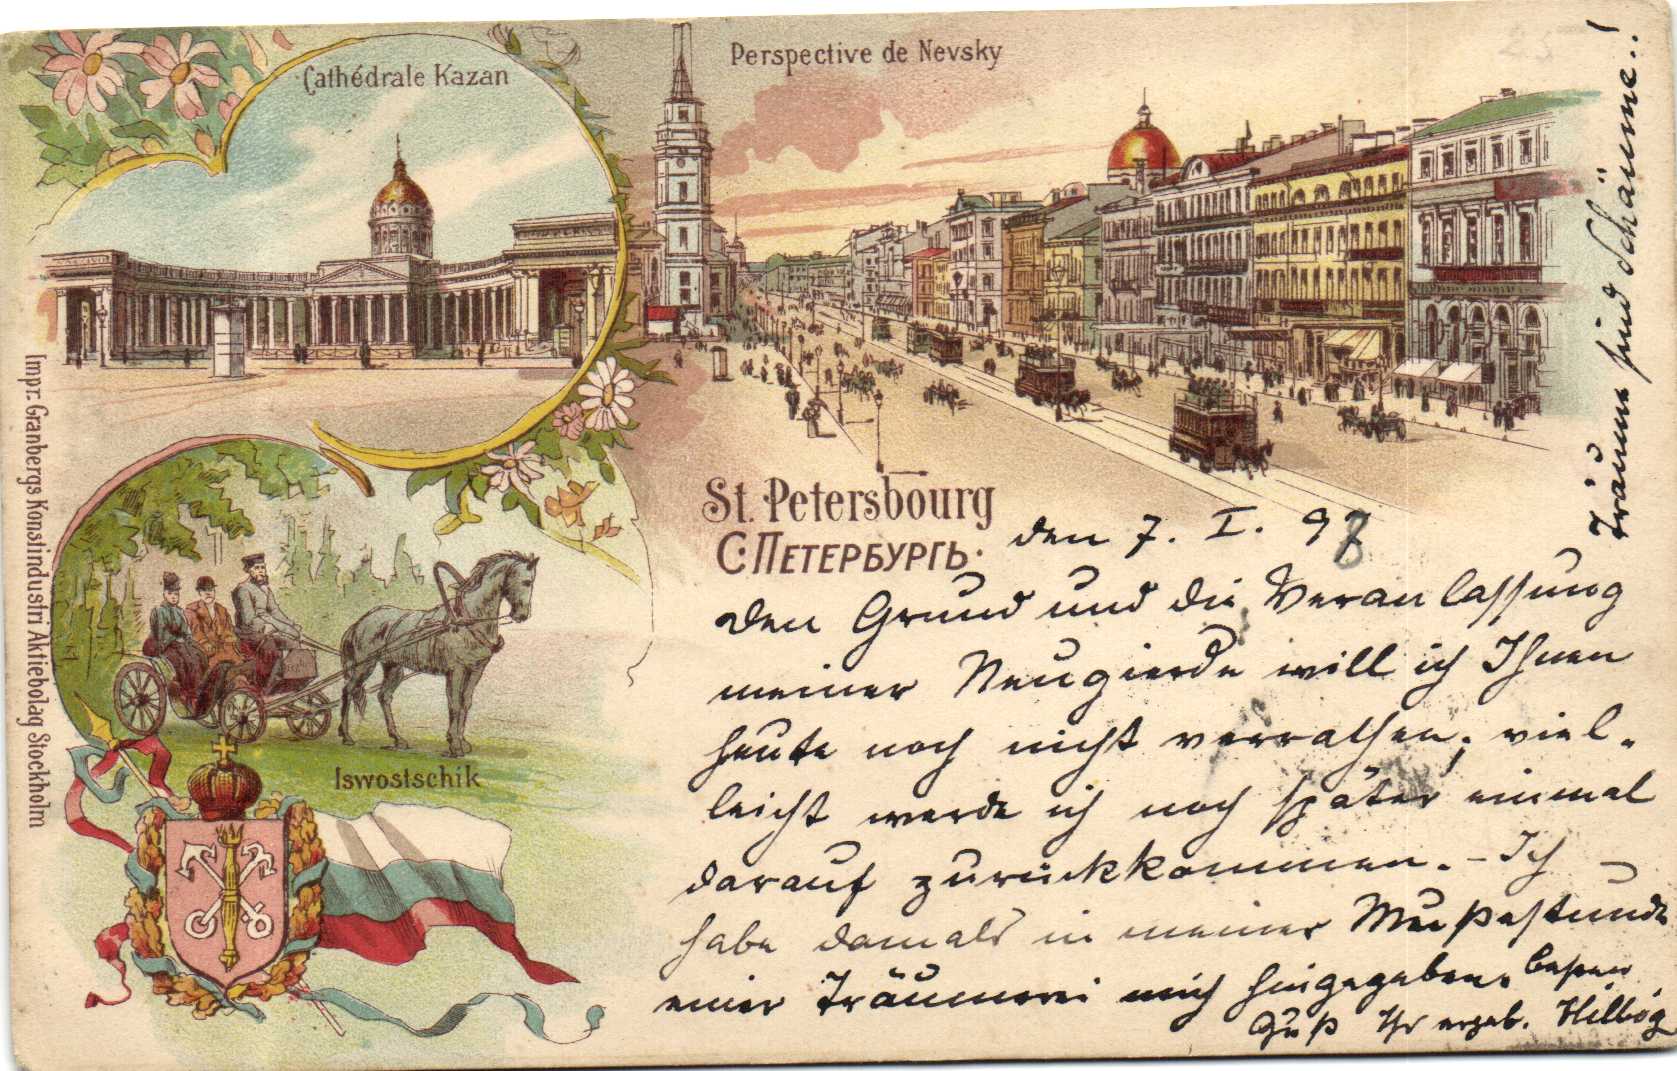 Cathédrale Kazan
Perspective de Nevsky
St. Petersbourg
С·ПЕТЕРБУРГЪ·
Iswostschik
Impr. Granbergs Konstindustri Aktiebolag Stockholm
den 7. I. 98
Den Grund und die Veranlassung
meiner Neugierde will ich Ihnen
heute noch nicht verrathen; viel-
leicht werde ich noch später einmal
darauf zurückkommen. - Ich
habe damals in meiner Mußestunde
einer Träumerei mich hingegeben.
Gruß Ihr ergeb.
Träume sind Schäume..!